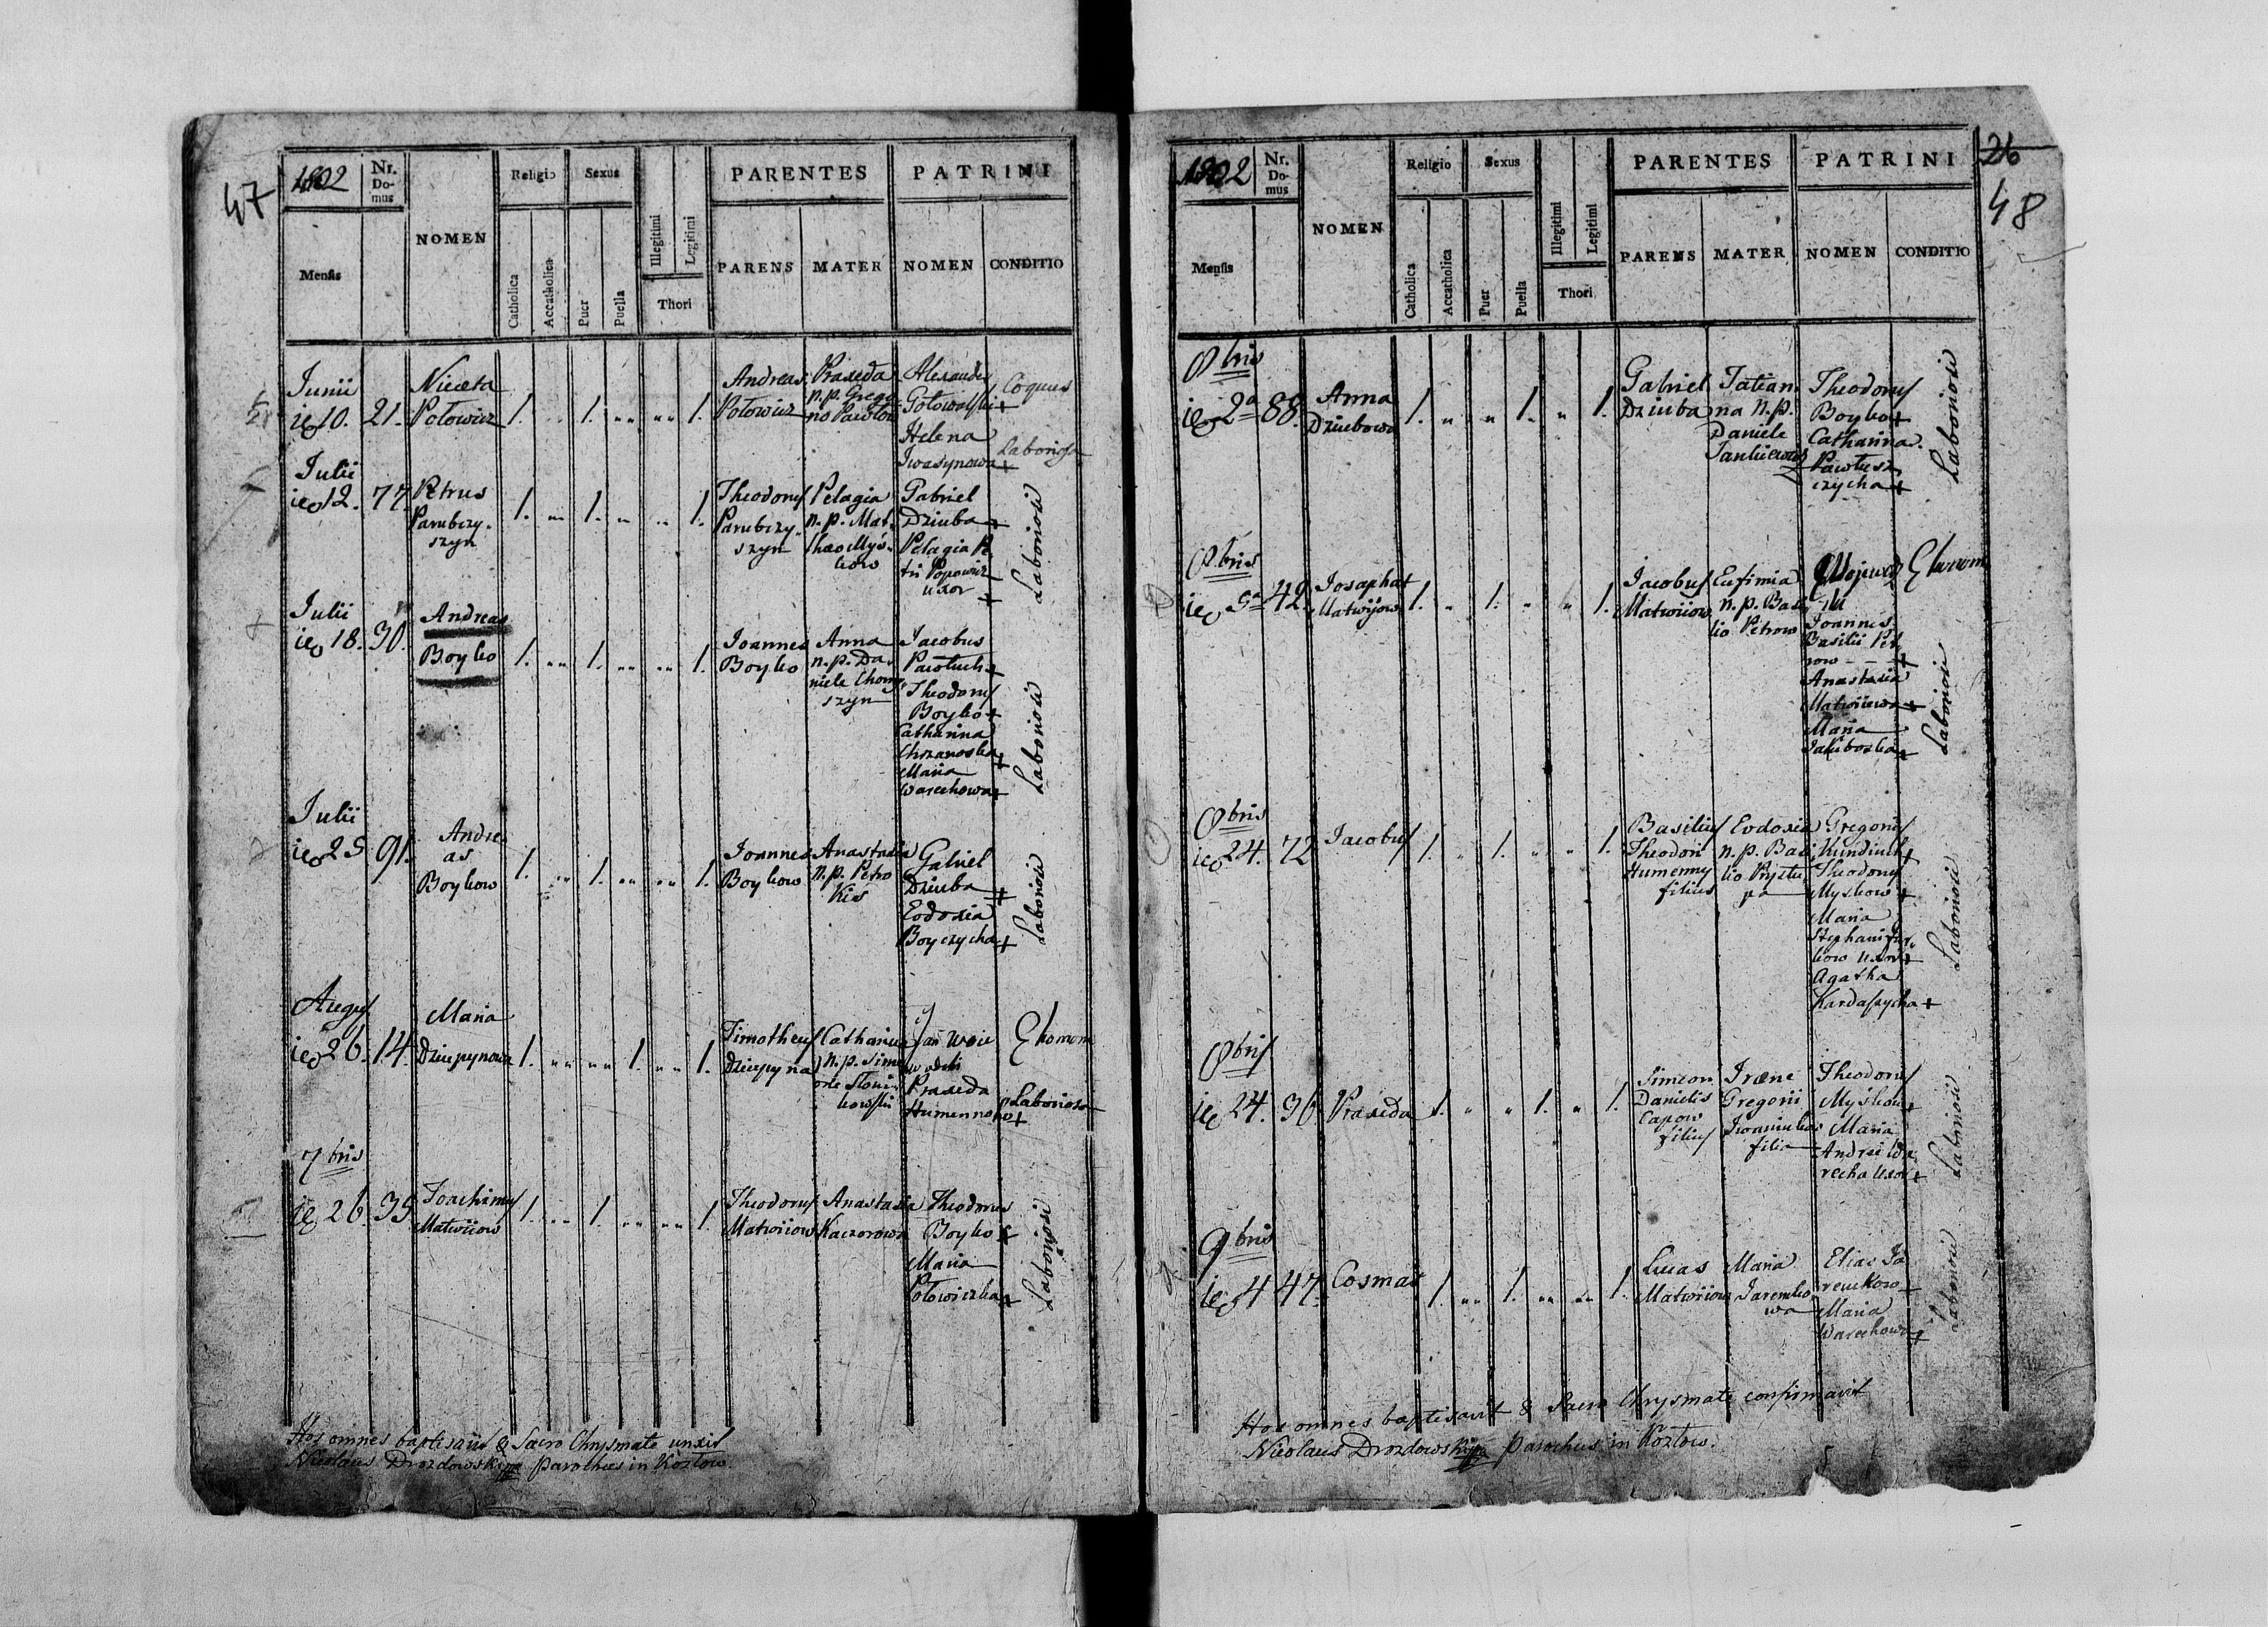 47
1802
Nr. Domus
NOMEN
Religio
Sexus
PARENTES
PATRINI
Mensis
Catholica
Accatholica
Puer
Puella
Illegitimi
Legitimi
Thori
PARENS
MATER
NOMEN
CONDITIO
Junii
10. 21.
Niceta
Połowicz
1. 1. 1.
Andreas
Połowicz
Praxeda
n.p. Grego
rio Pawłow
Alexander
Gołowalski +
Coquus
Helena
Iwasynowa +
Laboriosa
Julii
12. 77.
Petrus
Parubczy-
szyn
1. 1. 1.
Theodorus
Parubczy-
szyn
Pelagia
n.p. Mat-
thaeo Myś-
kow
Gabriel
Dziuba +
Pelagia Pe
tri Popowicz
uxor +
Laboriosi
Julii
18. 30.
Andreas
Boyko
1. 1. 1.
Joannes
Boyko
Anna
n.p. Da-
niele Chomy
szyn
Jacobus
Pawluch +
Theodorus
Boyko +
Catharina
Chrzanoska +
Maria
Warechowa +
Laboriosi
Julii
25 91.
Andre
as
Boykow
1. 1. 1.
Joannes
Boykow
Anastasia
n.p. Petro
Kis
Gabriel
Dziuba +
Eodoxia
Boyczycha +
Laboriosi
Augus
26. 14.
Maria
Dziepynowa
1. 1. 1.
Timotheus
Dziepyna
Catharina
n.p. Sime
one Słoni
kowski
Jan Woie
wodki
Ekonom
Praxeda
Humennoho +
Laboriosa
7bris
26. 35
Joachimus
Matwiiow
1. 1. 1.
Theodorus
Matwiiow
Anastasia
Kaczorowa
Theodorus
Boyko +
Maria
Połowiczka +
Laboriosi
Hos omnes baptisavit & Sacro Chrysmate unxit
Nicolaus Drozdowski parochus in Kozłow.
26
48
1802
Nr. Domus
NOMEN
Religio
Sexus
PARENTES
PATRINI
Mensis
Catholica
Accatholica
Puer
Puella
Illegitimi
Legitimi
Thori
PARENS
MATER
NOMEN
CONDITIO
8bris
2a 88.
Anna
Dziubowa
1. 1. 1.
Gabriel
Dziuba
Tatian
na n.p.
Daniele
Theodorus
Boyko +
Catharina
Pawlusz
czycha +
Laboriosi
8bris
42.
Josaphat
Matwijow
1. 1. 1.
Jacobus
Matwiiow
Eufimia
n.p. Basi
lio Petrow
Ekonom
Joannes
Basilii Pet
row +
Anastasia
Matwiiewa +
Maria
Jakuboska +
Laboriosi
8bris
24. 72
Jacobus
1. 1. 1.
Basilius
Theodori
Humenny
filius
Evdoxia
n.p. Basi
lio Prystu
pa
Gregorius
+
Theodorus
Myskow +
Maria
Stephani
kow uxor +
Agatha
Kardaszycha +
Laboriosi
8bris
24. 36.
Praxeda
1. 1. 1.
Simeon
Danielis
Capow
filius
Irene
Gregorii
filia
Theodorus
Myskow +
Maria
Andrei Wa
recha uxor +
Laboriosi
9bris
4 47.
Cosmas
1. 1. 1.
Lucas
Matwiiow
Maria
Jaremko
wa
Elias Ja
remkow +
Maria
Warechowa +
Laboriosi
Hos omnes baptisavit & Sacro Chrysmate confirmavit
Nicolaus Drozdowski parochus in Kozłow.